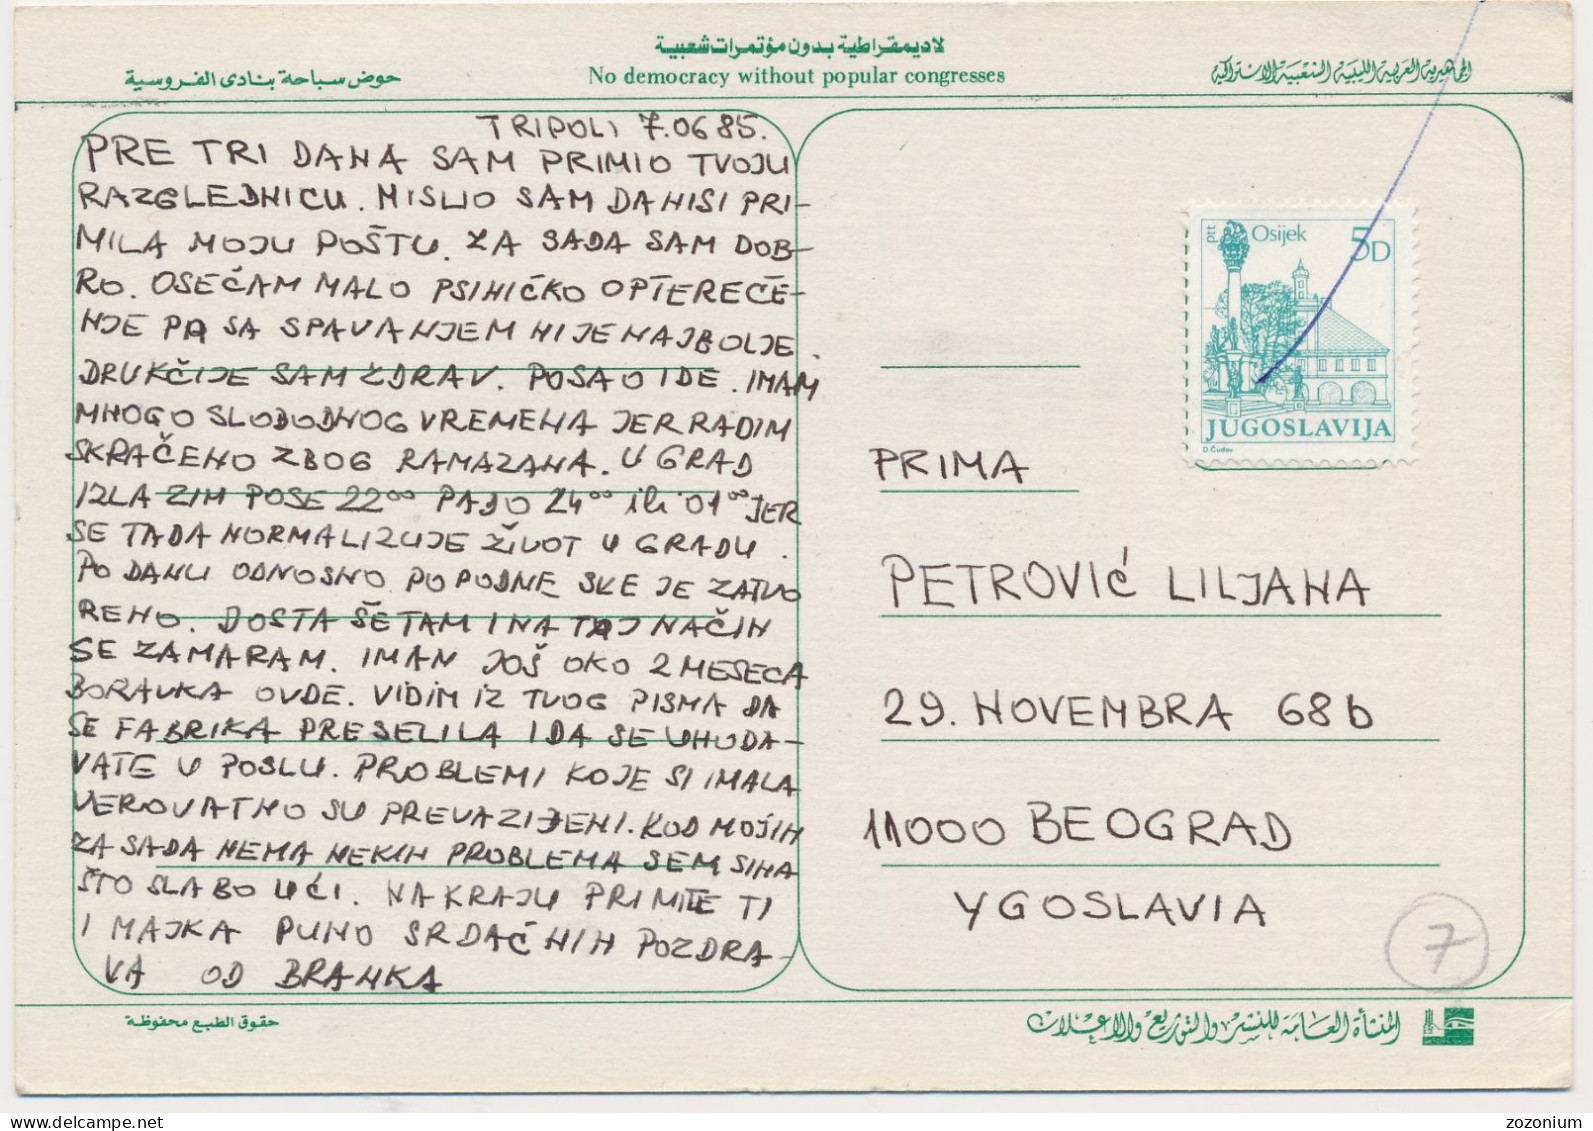 لاديمقراطية بدون مؤتمرات شعبية
No democracy without popular congresses
حوض سباحة بنادى الفروسية
الجماهيرية العربية الليبية الشعبية الاشتراكية
TRIPOLI 7.06 85.
PRE TRI DANA SAM PRIMIO TVOJU
RAZGLEDNICU. MISLIO SAM DA NISI PRI-
MILA MOJU POŠTU. ZA SADA SAM DOB-
RO. OSEČAM MALO PSIHIČKO OPTEREČE-
NJE PA SA SPAVANJEM NIJE NAJBOLJE.
DRUKČIJE SAM ZDRAV. POSAO IDE. IMAM
MNOGO SLOBODNOG VREMENA JER RADIM
SKRAČENO ZBOG RAMAZANA. U GRAD
IZLAZIM POSE 22°° PA DO 24°° ili 01°° JER
SE TADA NORMALIZUJE ŽIVOT U GRADU.
PO DANU ODNOSNO PO PODNE SVE JE ZATVO
RENO. DOSTA ŠETAM I NA TAJ NAČIN
SE ZAMARAM. IMAN JOŠ OKO 2 MESECA
BORAVKA OVDE. VIDIM IZ TVOG PISMA DA
SE FABRIKA PRESELILA I DA SE UHODA-
VATE U POSLU. PROBLEMI KOJE SI IMALA
VEROVATNO SU PREVAZIĐENI. KOD MOJIH
ZA SADA NEMA NEKIH PROBLEMA SEM SINA
ŠTO SLABO UĆI. NA KRAJU PRIMITE TI
I MAJKA PUNO SRDAČNIH POZDRA-
VA OD BRANKA
ptt Osijek 5D
JUGOSLAVIJA
D.Čudov
PRIMA
PETROVIĆ LILJANA
29. NOVEMBRA 68b
11000 BEOGRAD
YGOSLAVIA
7
حقوق الطبع محفوظة
المنشأة العامة للنشر والتوزيع والاعلان
www.delcampe.net
zozonium